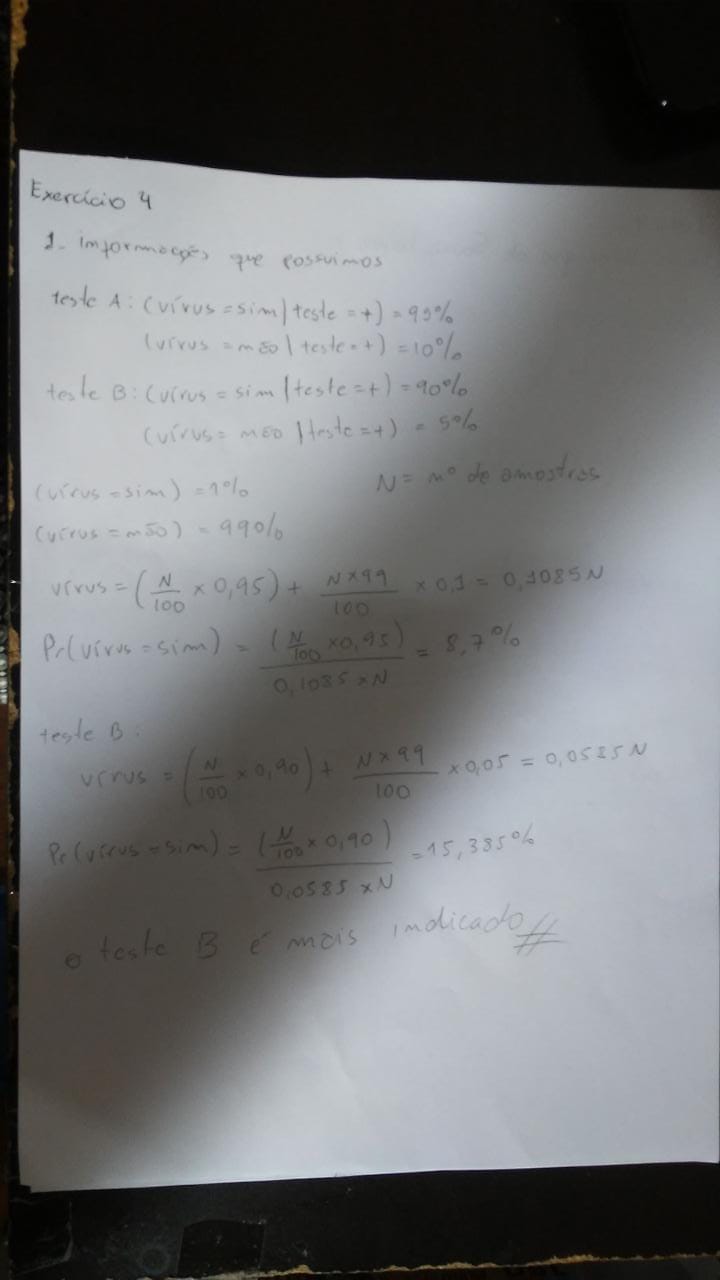 Exercício 4
1- informações que possuimos
teste A: (vírus = sim | teste = +) = 95%
(vírus = não | teste = +) = 10%
teste B: (vírus = sim | teste = +) = 90%
(vírus = não | teste = +) = 5%
(vírus = sim) = 1% N = nº de amostras
(vírus = não) = 99%
vírus = (N/100 x 0,95) + N x 99/100 x 0,1 = 0,1085 N
Pr(vírus = sim) = (N/100 x 0,95)/0,1085 x N = 8,7%
teste B:
vírus = (N/100 x 0,90) + N x 99/100 x 0,05 = 0,0585 N
Pr(vírus = sim) = (N/100 x 0,90)/0,0585 x N = 15,385%
o teste B é mais indicado